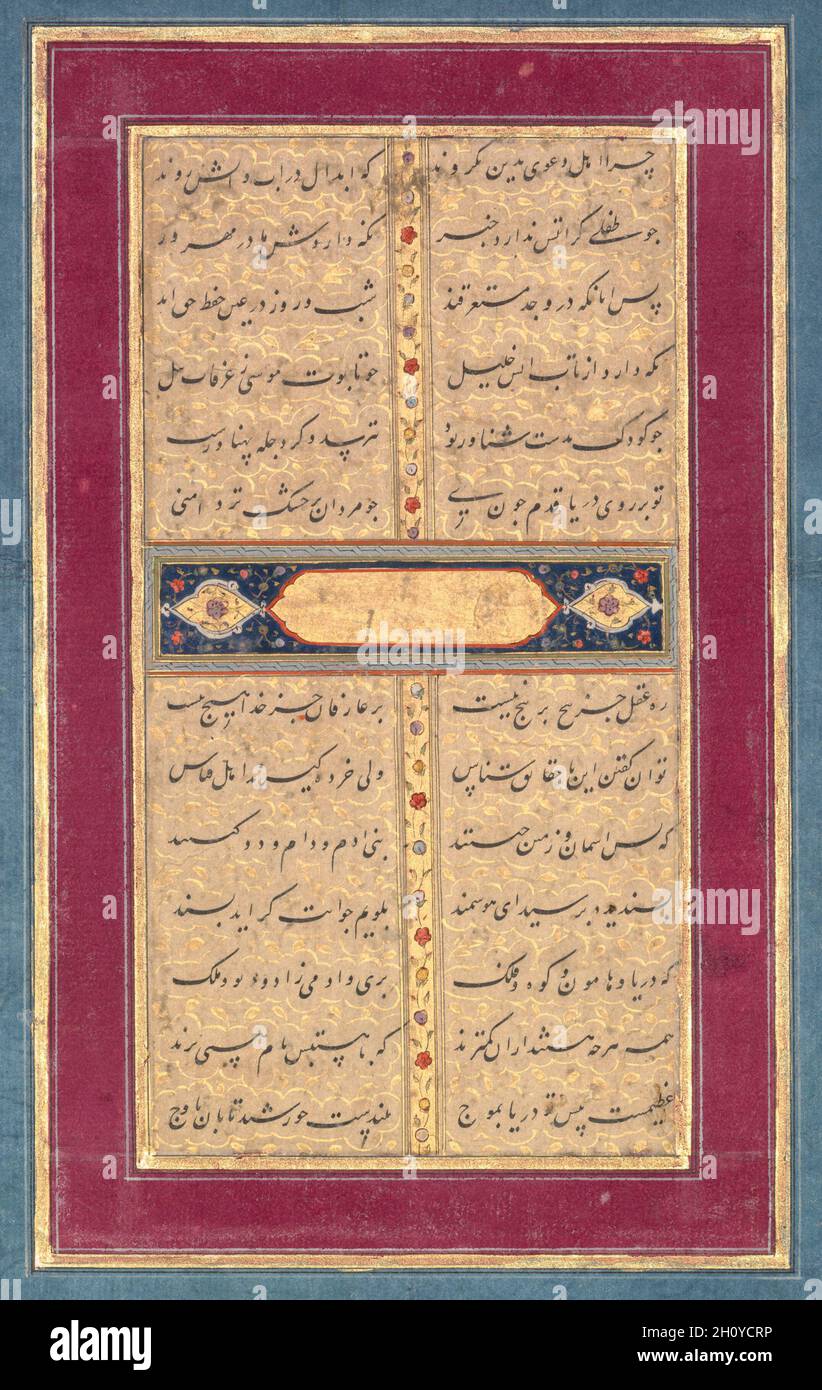 چرا اهل دعوی بدین نگروند که ابدال در اب و اتش روند
جو طفلی کز اتس ندارد خبر نکه داردش مادر مهرور
پس انانکه در وجد مستغرقند شب و روز در عین حفظ حق اند
نکه دارد از تاب اتس خلیل جو تابوت موسی ز غرقاب نیل
جو کودک بدست شناور بود نترسد وکر دجله پهناورست
تو بر روی دریا قدم جون زنی جو مردان بر خشک تر دامنی
ره عقل جز پیج بر پیج نیست بر عارفان جز خدا هیج نیست
توان کفتن این با حقایق شناس ولی خرده کیرند اهل قیاس
که پس اسمان و زمین چیستند بنی ادم و دام و دد کیستند
پسندیده پرسیدی ای هوشمند بکویم جوابت کر اید پسند
که دریا و هامون و کوه و فلک بری و ادمی زاد و دیو و ملک
همه هرچه هستند ازان کمترند که با هستیش نام هستی برند
عظیمست پیش تو دریا بموج بلندست خورشید تابان باوج
alamy
Image ID: 2H0YCRP
www.alamy.com